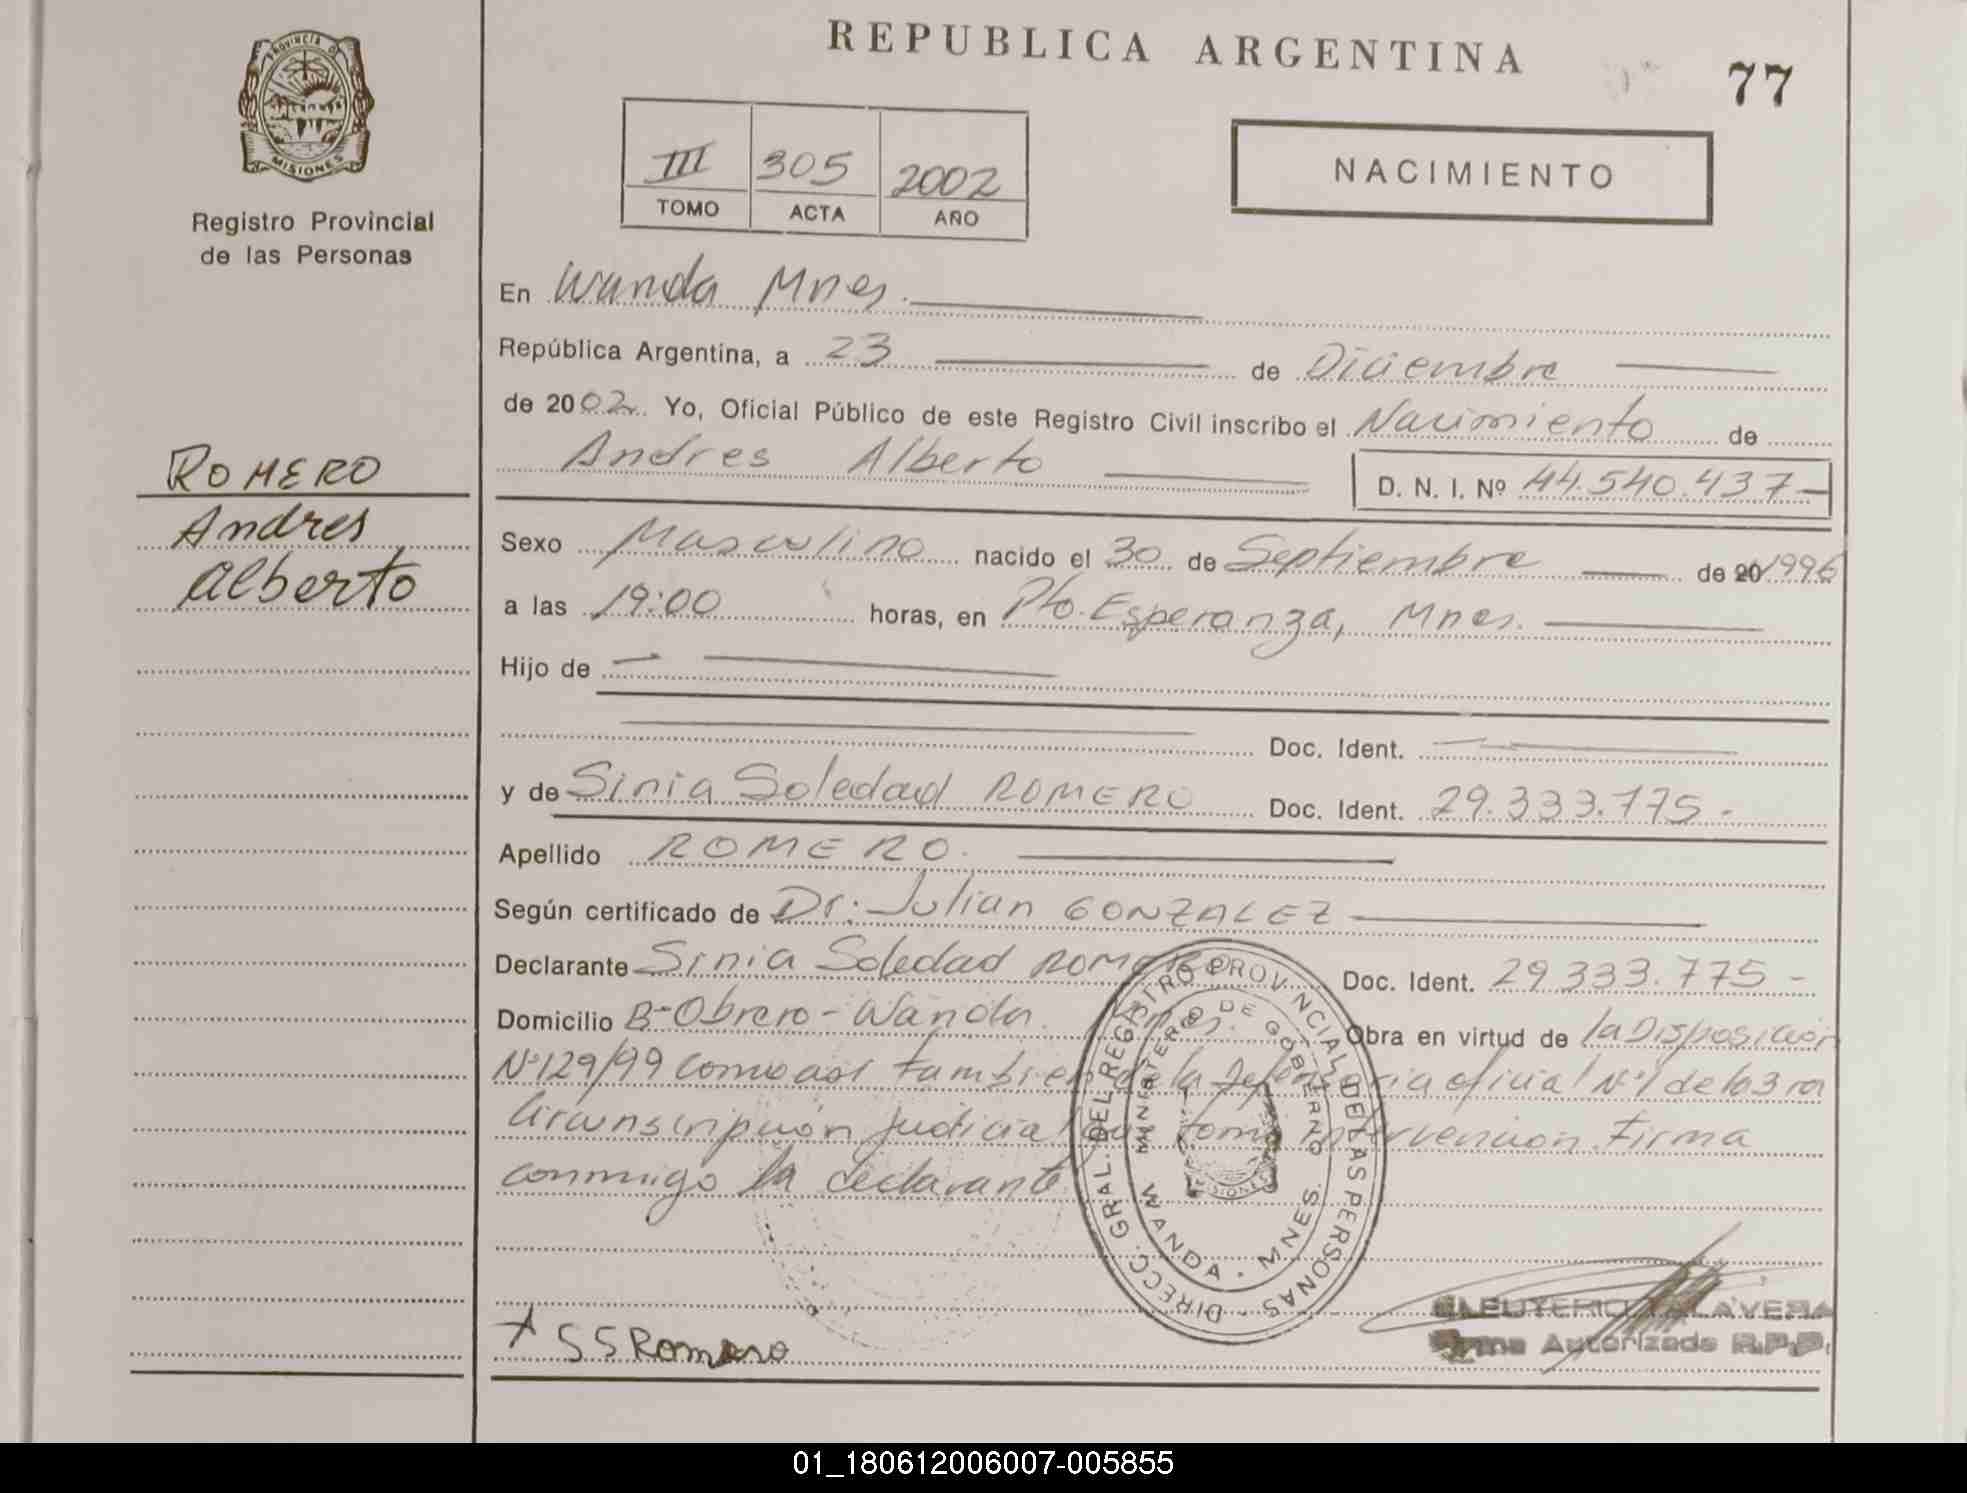 REPUBLICA ARGENTINA
77
PROVINCIA DE
MISIONES
Registro Provincial
de las Personas
III 305 2002
TOMO ACTA AÑO
NACIMIENTO
En Wanda Mnes.
República Argentina, a 23 de Diciembre
de 2002 Yo, Oficial Público de este Registro Civil inscribo el Nacimiento de
Andres Alberto D. N. I. Nº 44.540.437-
ROMERO
Andres
Alberto
Sexo Masculino nacido el 30 de Septiembre de 20 1996
a las 19:00 horas, en Pto. Esperanza, Mnes.
Hijo de
Doc. Ident.
y de Sinia Soledad ROMERO Doc. Ident. 29.333.775-
Apellido ROMERO.
Según certificado de Dr: Julian GONZALEZ
Declarante Sinia Soledad ROMERO Doc. Ident. 29.333.775-
Domicilio Bº Obrero - Wanda. Mnes. Obra en virtud de la Disposición
Nº129/99 como asi tambien de la defensoria oficial Nº1 de la 3ra
Circunscripción Judicial que tomo intervención. Firma
conmigo la declarante
DIRECC. GRAL. DEL REGISTRO PROVINCIAL DE LAS PERSONAS
MINISTERIO DE GOBIERNO
MISIONES
WANDA - MNES.
SSRomero
ELEUTERIO TALAVERA
Firma Autorizada R.P.P.
01_180612006007-005855